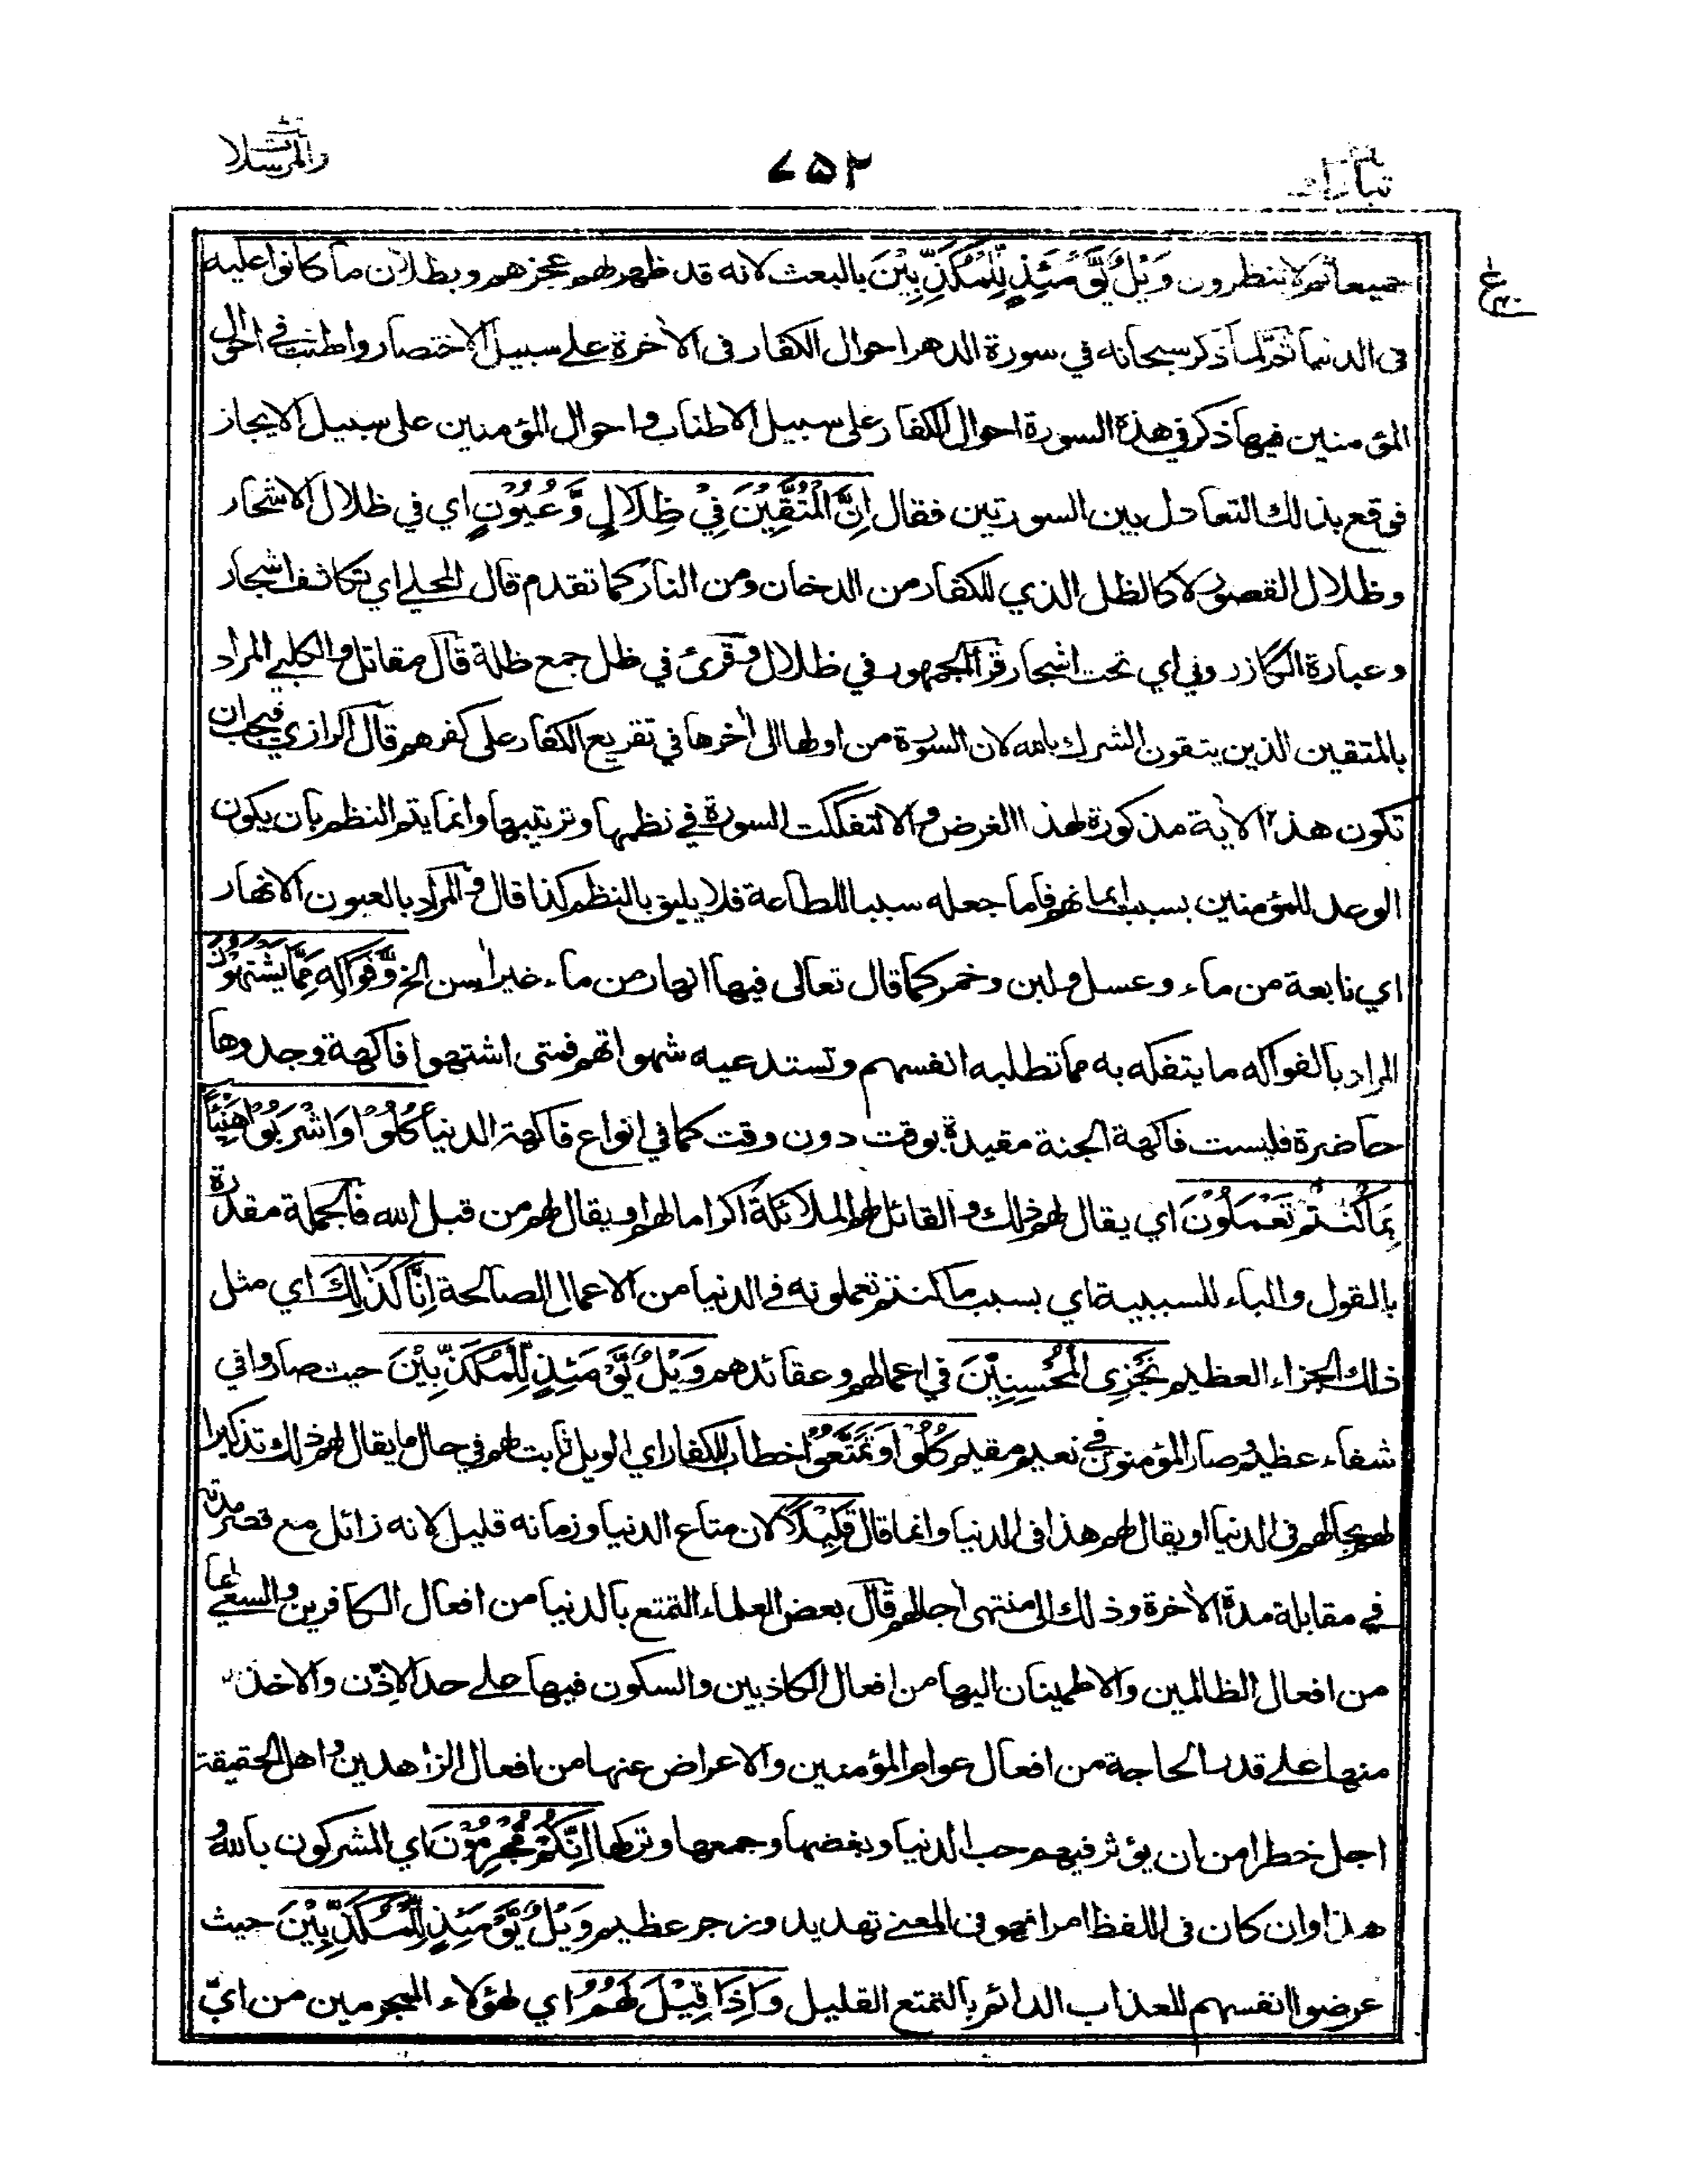 والمرسلات
٤٥٢
تبارك
جميعا ثم لا ينظرون وَيْلٌ يَّوْمَئِذٍ لِّلْمُكَذِّبِيْنَ بالبعث لانه قد ظهر لهم عجزهم وبطلان ما كانوا عليه
فى الدنيا ثم لما ذكر سبحانه في سورة الدهر احوال الكفار فى الاخرة على سبيل الاختصار واطنب في احوال
المؤمنين فيها ذكر في هذه السورة احوال الكفار على سبيل الاطناب واحوال المؤمنين على سبيل الايجاز
فوقع بذلك التعادل بين السورتين فقال اِنَّ الْمُتَّقِيْنَ فِيْ ظِلَالٍ وَّعُيُوْنٍ اي في ظلال الاشجار
وظلال القصور لا كالظل الذي للكفار من الدخان ومن النار كما تقدم قال المحلي اي تكاثف اشجار
وعبارة الكازروني اي تحت اشجار قرأ الجمهور في ظلال وقرئ في ظلل جمع ظلة قال مقاتل والكلبي المراد
بالمتقين الذين يتقون الشرك بالله لان السورة من اولها الى اٰخرها في تقريع الكفار على كفرهم قال الرازي فيجب ان
تكون هذه الاٰية مذكورة لهذا الغرض والا لتفككت السورة في نظمها وترتيبها وانما يتم النظم بان يكون
الوعد للمؤمنين بسبب ايمانهم فاما جعله سببا للطاعة فلا يليق بالنظم كذا قال والمراد بالعيون الانهار
اي نابعة من ماء وعسل ولبن وخمر كما قال تعالى فيها انهار من ماء غير اٰسن الخ وَّفَوَاكِهَ مِمَّا يَشْتَهُوْنَ
المراد بالفواكه ما يتفكه به مما تطلبه انفسهم وتستدعيه شهواتهم فمتى اشتهوا فاكهة وجدوها
حاضرة فليست فاكهة الجنة مقيدة بوقت دون وقت كما في انواع فاكهة الدنيا كُلُوْا وَاشْرَبُوْا هَنِيْئًا
بِمَا كُنْتُمْ تَعْمَلُوْنَ اي يقال لهم ذلك والقائل لهم الملائكة اكراما لهم او يقال لهم من قبل الله فالجملة مقدرة
بالقول والباء للسببية اي بسبب ما كنتم تعملونه في الدنيا من الاعمال الصالحة اِنَّا كَذٰلِكَ اي مثل
ذلك الجزاء العظيم نَجْزِى الْمُحْسِنِيْنَ في اعمالهم وعقائدهم وَيْلٌ يَّوْمَئِذٍ لِّلْمُكَذِّبِيْنَ حيث صاروا في
شقاء عظيم وصار المؤمنون في نعيم مقيم كُلُوْا وَتَمَتَّعُوْا خطاب للكفار اي الويل ثابت لهم في حال ما يقال لهم ذلك تذكيرا
لهم بحالهم فى الدنيا او يقال لهم هذا فى الدنيا وانما قال قَلِيْلًا لان متاع الدنيا وزمانه قليل لانه زائل مع قصر مدته
في مقابلة مدة الاٰخرة وذلك الى منتهى اجالهم قال بعض العلماء التمتع بالدنيا من افعال الكافرين والسعي لها
من افعال الظالمين والاطمينان اليها من افعال الكاذبين والسكون فيها على حد الاذن والاخذ
منها على قدر الحاجة من افعال عوام المؤمنين والاعراض عنها من افعال الزاهدين واهل الحقيقة
اجل خطرا من ان يؤثر فيهم حب الدنيا وبغضها وجمعها وتركها اِنَّكُمْ مُّجْرِمُوْنَ اي المشركون بالله و
هذا وان كان فى اللفظ امرا فهو فى المعنى تهديد وزجر عظيم وَيْلٌ يَّوْمَئِذٍ لِّلْمُكَذِّبِيْنَ حيث
عرضوا انفسهم للعذاب الدائم بالتمتع القليل وَاِذَا قِيْلَ لَهُمُ اي لهؤلاء المجرمين من ايّ